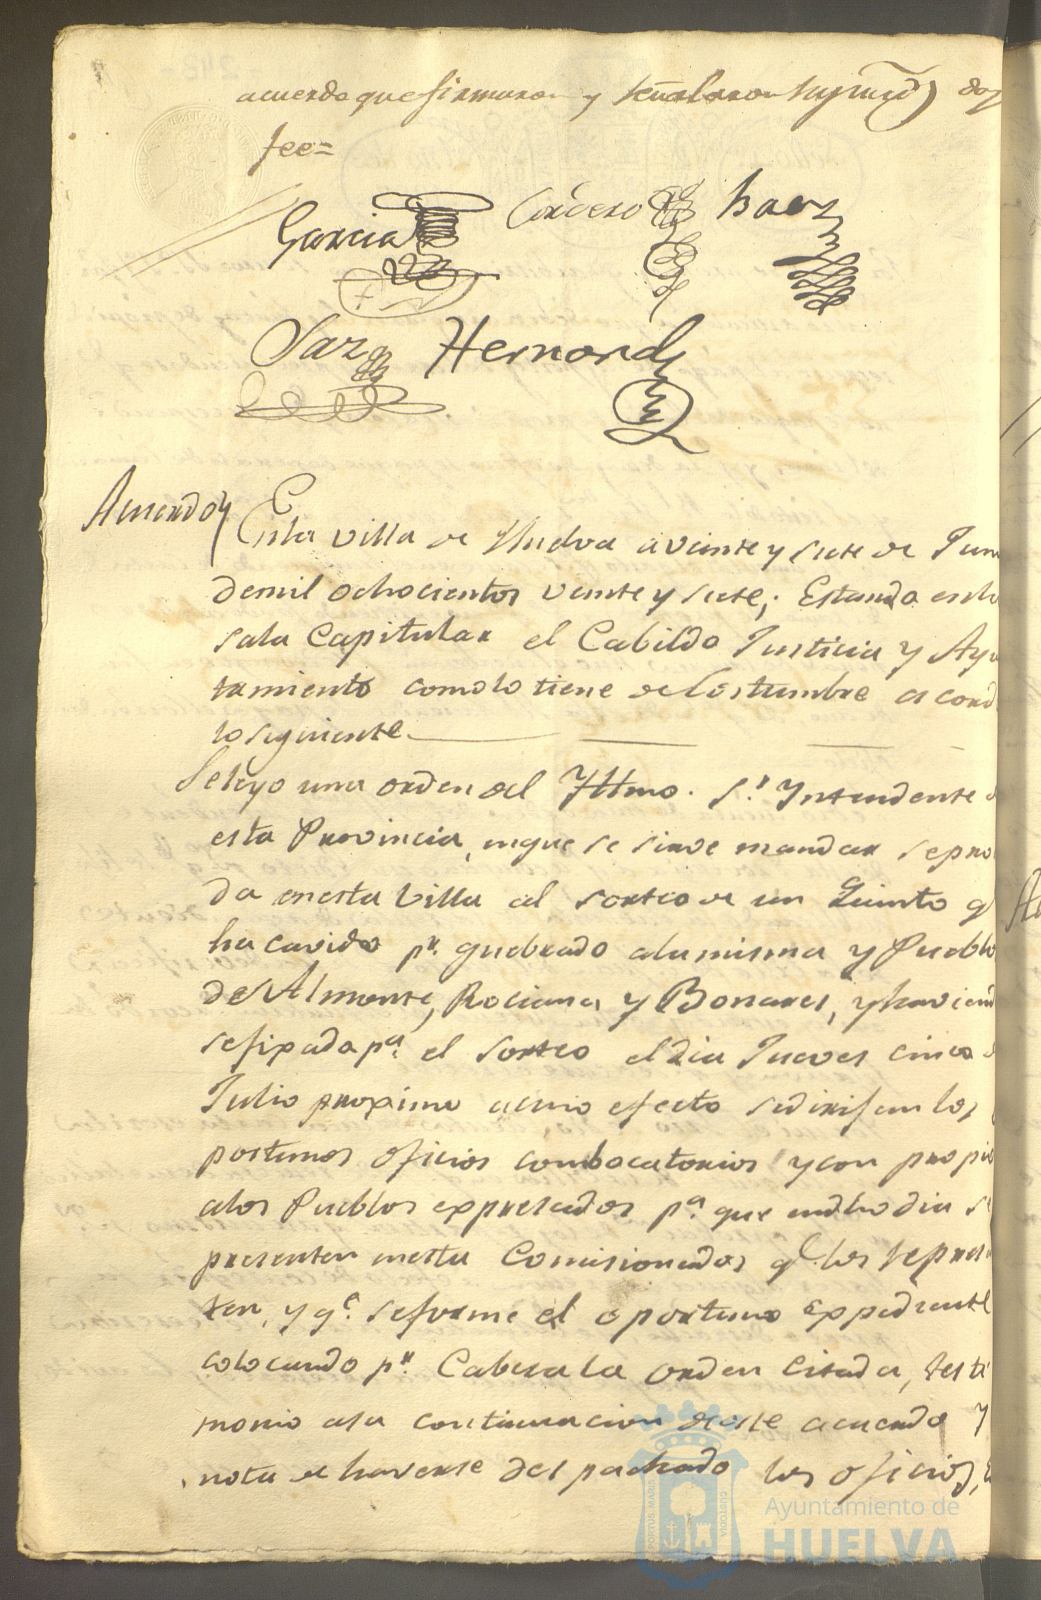 acuerdo que firmaron y señalaron sus mrds) doy
fee=
Garcia Cordero Baez
Saz Hernand
Acuerdo
En la villa de Huelva a veinte y siete de Jun
de mil ochocientos veinte y siete; Estando en la
sala Capitular el Cabildo Justicia y Ayu
tamiento como lo tiene de Costumbre acord
lo siguiente.
Se leyo una orden del Yllmo. Sr. Yntendente
esta Provincia, en que se sirve mandar se pro
da en esta Villa al sorteo de un Quinto q
ha cavido pr. quebrado a la misma y Pueblo
de Almonte, Rociana y Bonares, y haviend
se fixado pa. el sorteo el dia Jueves cinco
Julio proximo a cuio efecto se dirijan los
portunos oficios combocatorios y con propio
a los Pueblos expresados pa. que en dho dia s
presenten en esta Comisionados qe los repres
ten, y qe. se forme el oportuno expediente
colocando pr. Cabesa la orden citada, testi
monio a su continuacion de este acuerdo y
nota de haverse despachado los oficios,
Ayuntamiento de
HUELVA